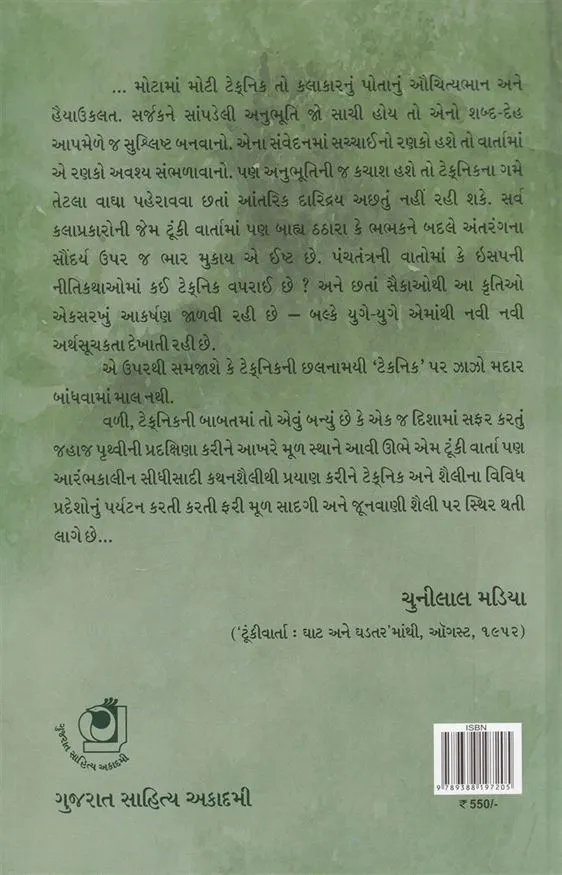 ... મોટામાં મોટી ટેક્નિક તો કલાકારનું પોતાનું ઔચિત્યભાન અને
હૈયાઉકલત. સર્જકને સાંપડેલી અનુભૂતિ જો સાચી હોય તો એનો શબ્દ-દેહ
આપમેળે જ સુશ્લિષ્ટ બનવાનો. એના સંવેદનમાં સચ્ચાઈનો રણકો હશે તો વાર્તામાં
એ રણકો અવશ્ય સંભળાવાનો. પણ અનુભૂતિની જ કચાશ હશે તો ટેક્નિકના ગમે
તેટલા વાઘા પહેરાવવા છતાં આંતરિક દારિદ્રય અછતું નહીં રહી શકે. સર્વ
કલાપ્રકારોની જેમ ટૂંકી વાર્તામાં પણ બાહ્ય ઠઠારા કે ભભકને બદલે અંતરંગના
સૌંદર્ય ઉપર જ ભાર મુકાય એ ઈષ્ટ છે. પંચતંત્રની વાતોમાં કે ઇસપની
નીતિકથાઓમાં કઈ ટેક્નિક વપરાઈ છે ? અને છતાં સૈકાઓથી આ કૃતિઓ
એકસરખું આકર્ષણ જાળવી રહી છે – બલ્કે યુગે-યુગે એમાંથી નવી નવી
અર્થસૂચકતા દેખાતી રહી છે.
એ ઉપરથી સમજાશે કે ટેક્નિકની છલનામયી ‘ટેકનિક’ પર ઝાઝો મદાર
બાંધવામાં માલ નથી.
વળી, ટેક્નિકની બાબતમાં તો એવું બન્યું છે કે એક જ દિશામાં સફર કરતું
જહાજ પૃથ્વીની પ્રદક્ષિણા કરીને આખરે મૂળ સ્થાને આવી ઊભે એમ ટૂંકી વાર્તા પણ
આરંભકાલીન સીધીસાદી કથનશૈલીથી પ્રયાણ કરીને ટેક્નિક અને શૈલીના વિવિધ
પ્રદેશોનું પર્યટન કરતી કરતી ફરી મૂળ સાદગી અને જૂનવાણી શૈલી પર સ્થિર થતી
લાગે છે...
ચુનીલાલ મડિયા
(‘ટૂંકીવાર્તા : ઘાટ અને ઘડતર’માંથી, ઑગસ્ટ, ૧૯૫૨)
ગુજરાત સાહિત્ય અકાદમી
ગુજરાત સાહિત્ય અકાદમી
ISBN
9789388197205
₹ 550/-